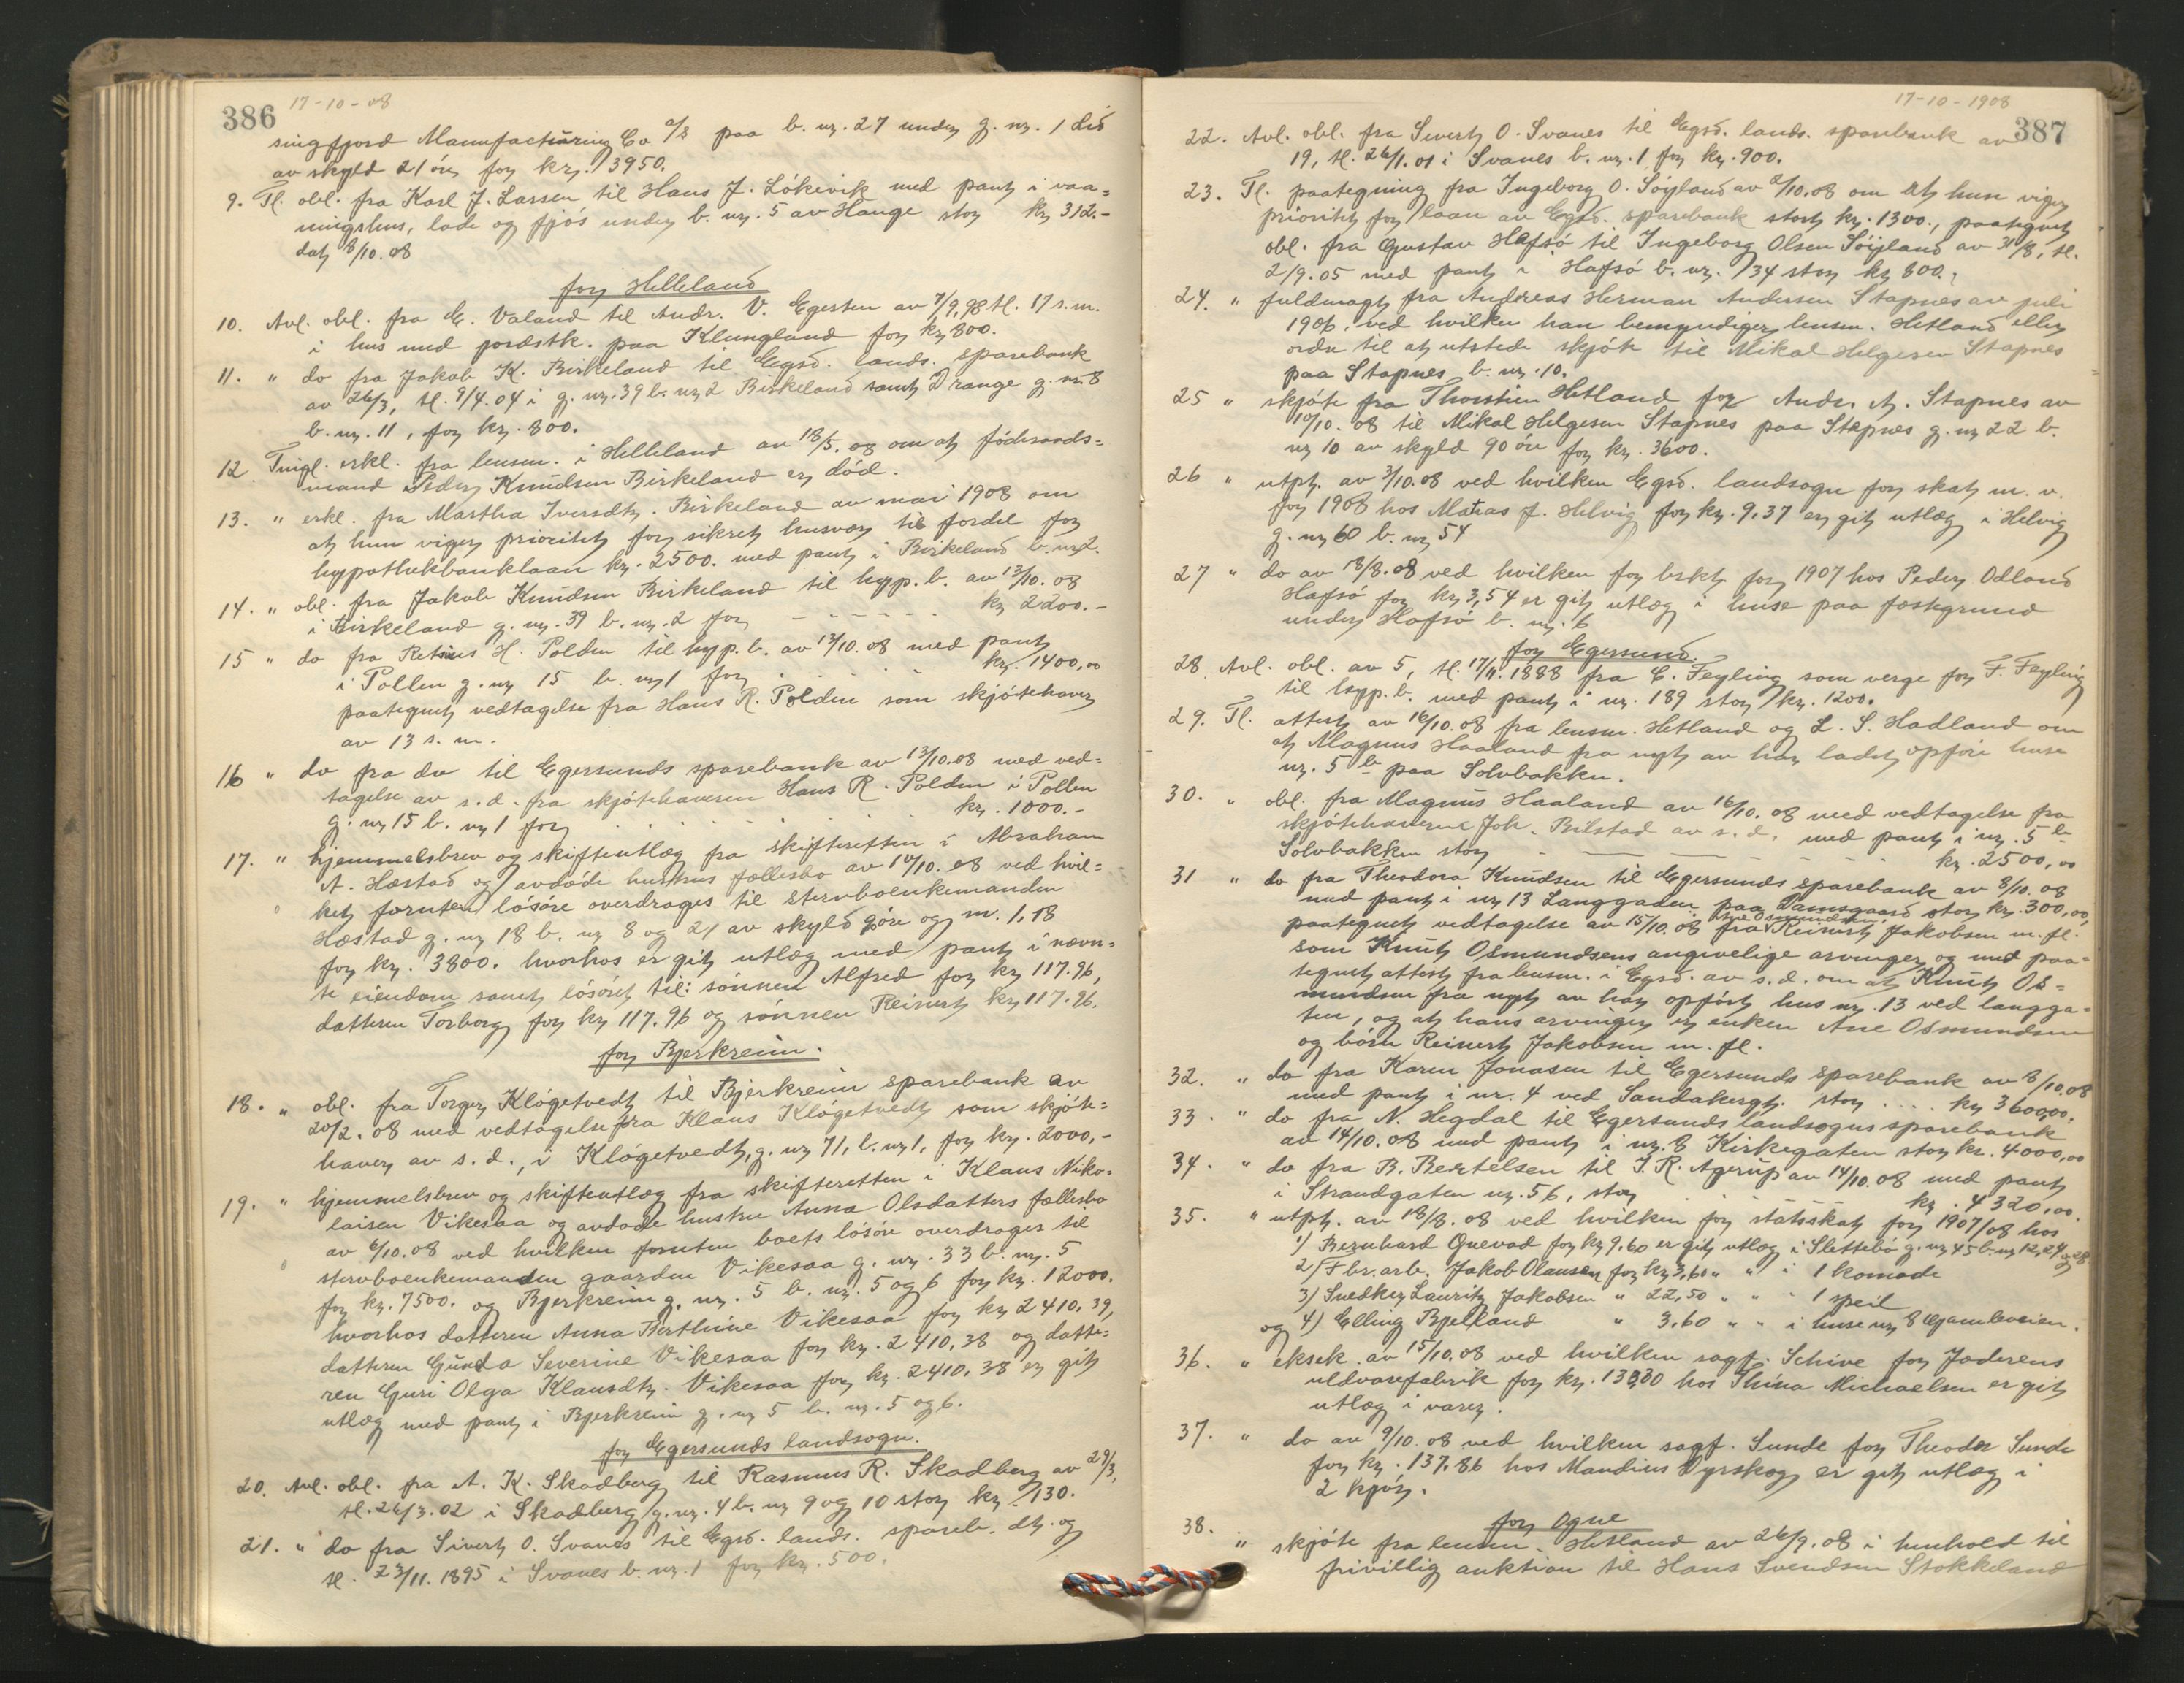 386 17-10-08
singfjord Manufacturing Co a/s paa b. nr. 27 under g. nr. 1 did
av skyld 21 øre for kr. 3950.
9. Tl. obl. fra Karl J. Larsen til Hans J. Lökivik med pant i vaa=
ningshus, lade og fjós under b. nr. 5 av Hauge stor kr 312.-
dat 8/10.08
for Helleland
10. Avl. obl. fra E. Valand til Andr. V. Egesten av 7/9, 98 tl. 17 s.m.
i hus med jordstk. paa Klungland for kr 800.
11. " do fra Jakob K. Birkeland til Egsd. lands. sparebank
av 26/3, tl. 9/4.04 i g. nr. 39 b. nr 2 Birkeland samt Drange g. nr. 8
b. nr. 11, for kr. 800.
12 Tingl. erkl. fra lensm. i Helleland av 18/5.08 om at föderaads=
mand Peder Knudsen Birkeland er död.
13. " erkl. fra Martha Iversdtr. Birkeland av mai 1908 om
at hun viger prioritet for sikret husvær til fordel for
hypothekbanklaan kr. 2500. med pant i Birkeland b. nr 2.
14. " obl. fra Jakob Knudsen Birkeland til hyp. b. av 13/10.08
i Birkeland g. nr. 39 b. nr. 2 for - - - - - kr 2200.-
15 " do fra Petrius H. Polden til hyp. b. av 13/10.08 med pant
i Pollen g. nr 15 b. nr 1 for . . . kr. 1400,00
paategnet vedtagelse fra Hans R. Polden som skjötehaver
av 13 s. m.
16 " do fra do til Egersunds sparebank av 13/10.08 med ved=
tagelse av s. d. fra skjötehaveren Hans R. Polden i Pollen
g. nr 15 b. nr 1 for . . . . . . kr. 1000.-
17. " hjemmelsbrev og skifteutlæg fra skifteretten i Abraham
A. Hæstad og avdöde hustrus fællesbo av 10/10.08 ved hvil=
ket foruten lösöre overdrages til stervboenkemanden
Hæstad g. nr 18 b. nr 8 og 21 av skyld 9öre og m. 1,18
for kr. 3800. hvorhos er git utlæg med pant i nævn=
te eiendom samt lösöret til: sönnen Alfred for kr 117.96,
datteren Torborg for kr 117.96 og sönnen Reinert kr 117.96.
for Bjerkreim.
18. " obl. fra Torger Klögetvedt til Bjerkreim sparebank av
20/2.08 med vedtagelse fra Klaus Klögetvedt som skjöte=
haver av s. d., i Klögetvedt, g. nr 71, b. nr 1, for kr. 2000,-
19. " hjemmelsbrev og skifteutlæg fra skifteretten i Klaus Niko=
laisen Vikesaa og avdöde hustru Anna Olsdatters fællesbo
av 6/10.08 ved hvilken foruten boets lösöre overdrages til
stervboenkemanden gaarden Vikesaa g. nr. 33 b. nr. 5
for kr. 7500. og Bjerkreim g. nr. 5 b. nr. 5 og 6 for kr. 12000.
hvorhos datteren Anna Berthine Vikesaa for kr 2410,39,
datteren Gunda Severine Vikesaa for kr. 2410,38 og datte=
ren Guri Olga Klausdtr. Vikesaa for kr. 2410,38 er git
utlæg med pant i Bjerkreim g. nr 5 b. nr. 5 og 6.
for Egersunds landsogn.
20. Avl. obl. fra A. K. Skadberg til Rasmus R. Skadberg av 24/3,
tl. 26/3.02 i Skadberg g. nr. 4 b. nr 9 og 10 stor kr. 130.
21. " do fra Sivert O. Svanes til Egsd. lands. spareb. dt. og
tl. 23/11.1895 i Svanes b. nr. 1 for kr. 500.
17-10-1908 387
22. Avl. obl. fra Sivert O. Svanes til Egsd. lands. sparebank av
19, tl. 26/1.01 i Svanes b. nr. 1 for kr. 900.
23. Tl. paategning fra Ingeborg O. Söyland av 2/10.08 om at hun viger
prioritet for laan av Egsd. sparebank stort kr. 1300., paategnet
obl. fra Gustav Hafsö til Ingeborg Olsen Söyland av 31/8, tl.
2/9.05 med pant i Hafsö b. nr. 134 stor kr 800.,
24. " fuldmagt fra Andreas Herman Andersen Stapnes av juli
1906, ved hvilken han bemyndiger lensm. Hetland eller
ordre til at utstede skjöte til Mikal Helgesen Stapnes
paa Stapnes b. nr. 10.
25 " skjöte fra Thorstein Hetland for Andr. A. Stapnes av
10/10.08 til Mikal Helgesen Stapnes paa Stapnes g. nr 22 b.
nr 10 av skyld 90 öre for kr. 3600.
26 " utpt. av 3/10.08 ved hvilken Egsd. landsogn for skat m. v.
for 1908 hos Matias J. Helvig for kr. 9,37 er git utlæg i Helvig
g. nr 60 b. nr 54
27 " do av 18/8.08 ved hvilken for brkt. for 1907 hos Peder Odland
Hafsö for kr 3,54 er git utlæg i huse paa fæstegrund
under Hafsö b. nr. 6
for Egersund.
28. Avl. obl. av 5, tl. 17/11.1888 fra C. Feyling som verge for F. Feyling
til hyp. b. med pant i nr. 189 stor kr. 1200.
29. Tl. attest av 16/10.08 fra lensm. Hetland og L. S. Hadland om
at Magnus Haaland fra nyt av har ladet opföre huse
nr. 5 b paa Solvbakken.
30. " obl. fra Magnus Haaland av 16/10.08 med vedtagelse fra
skjötehaverne Joh. Bilstad av s. d. med pant i nr. 5 b
Solvbakken stor - - - - - kr. 2500,00
31 " do fra Theodora Knudsen til Egersunds sparebank av 8/10.08
med pant i nr 13 Langgaden paa Damsgaard stor kr. 300,00,
paategnet vedtagelse av 15/10.08 fra Ane Osmundsen, Reinert Jakobsen m. fl.
som Knut Osmundsens angivelige arvinger og med paa=
tegnet attest fra lensm. i Egsd. av s. d. om at Knut Os=
mundsen fra nyt av har opfört hus nr. 13 ved langga=
ten, og at hans arvinger er enken Ane Osmundsen
og börn Reinert Jakobsen m. fl.
32. " do fra Karen Jonasen til Egersunds sparebank av 8/10.08
med pant i nr. 4 ved Sandakergt. stor . . . . kr 3600,00.
33. " do fra N. Hegdal til Egersunds landsogns sparebank
av 14/10.08 med pant i nr. 8 Kirkegaten stor kr. 4000,00
34. " do fra B. Bertelsen til J. R. Agerup av 14/10.08 med pant
i Strandgaten nr. 56, stor . . . . . kr. 4320,00.
35. " utpt. av 18/8.08 ved hvilken for statsskat for 1907/08 hos
1) Bernhard Quevad for kr 9.60 er git utlæg i Slettebö g. nr 45 b. nr 12, 24 og 28
2) Fbr. arb. Jakob Olausen for kr 3,60 " " i 1 komode
3) Snedker Lauritz Jakobsen " 22,50 " " - 1 speil
og 4) Elling Bjelland " 3.60 " " i huse nr 8 Gamleveien.
36. " eksek. av 15/10.08 ved hvilken sagf. Schive for Jæderens
uldvarefabrik for kr. 133,30 hos Thina Michaelsen er git
utlæg i varer.
37. " do av 9/10.08 ved hvilken sagf. Sunde for Theodor Sunde
for kr. 137.86 hos Mandius Dyrskog er git utlæg i
2 kjör.
for Ogne
38. " skjöte fra lensm. Hetland av 26/9.08 i henhold til
frivillig auktion til Hans Svendsen Stokkeland